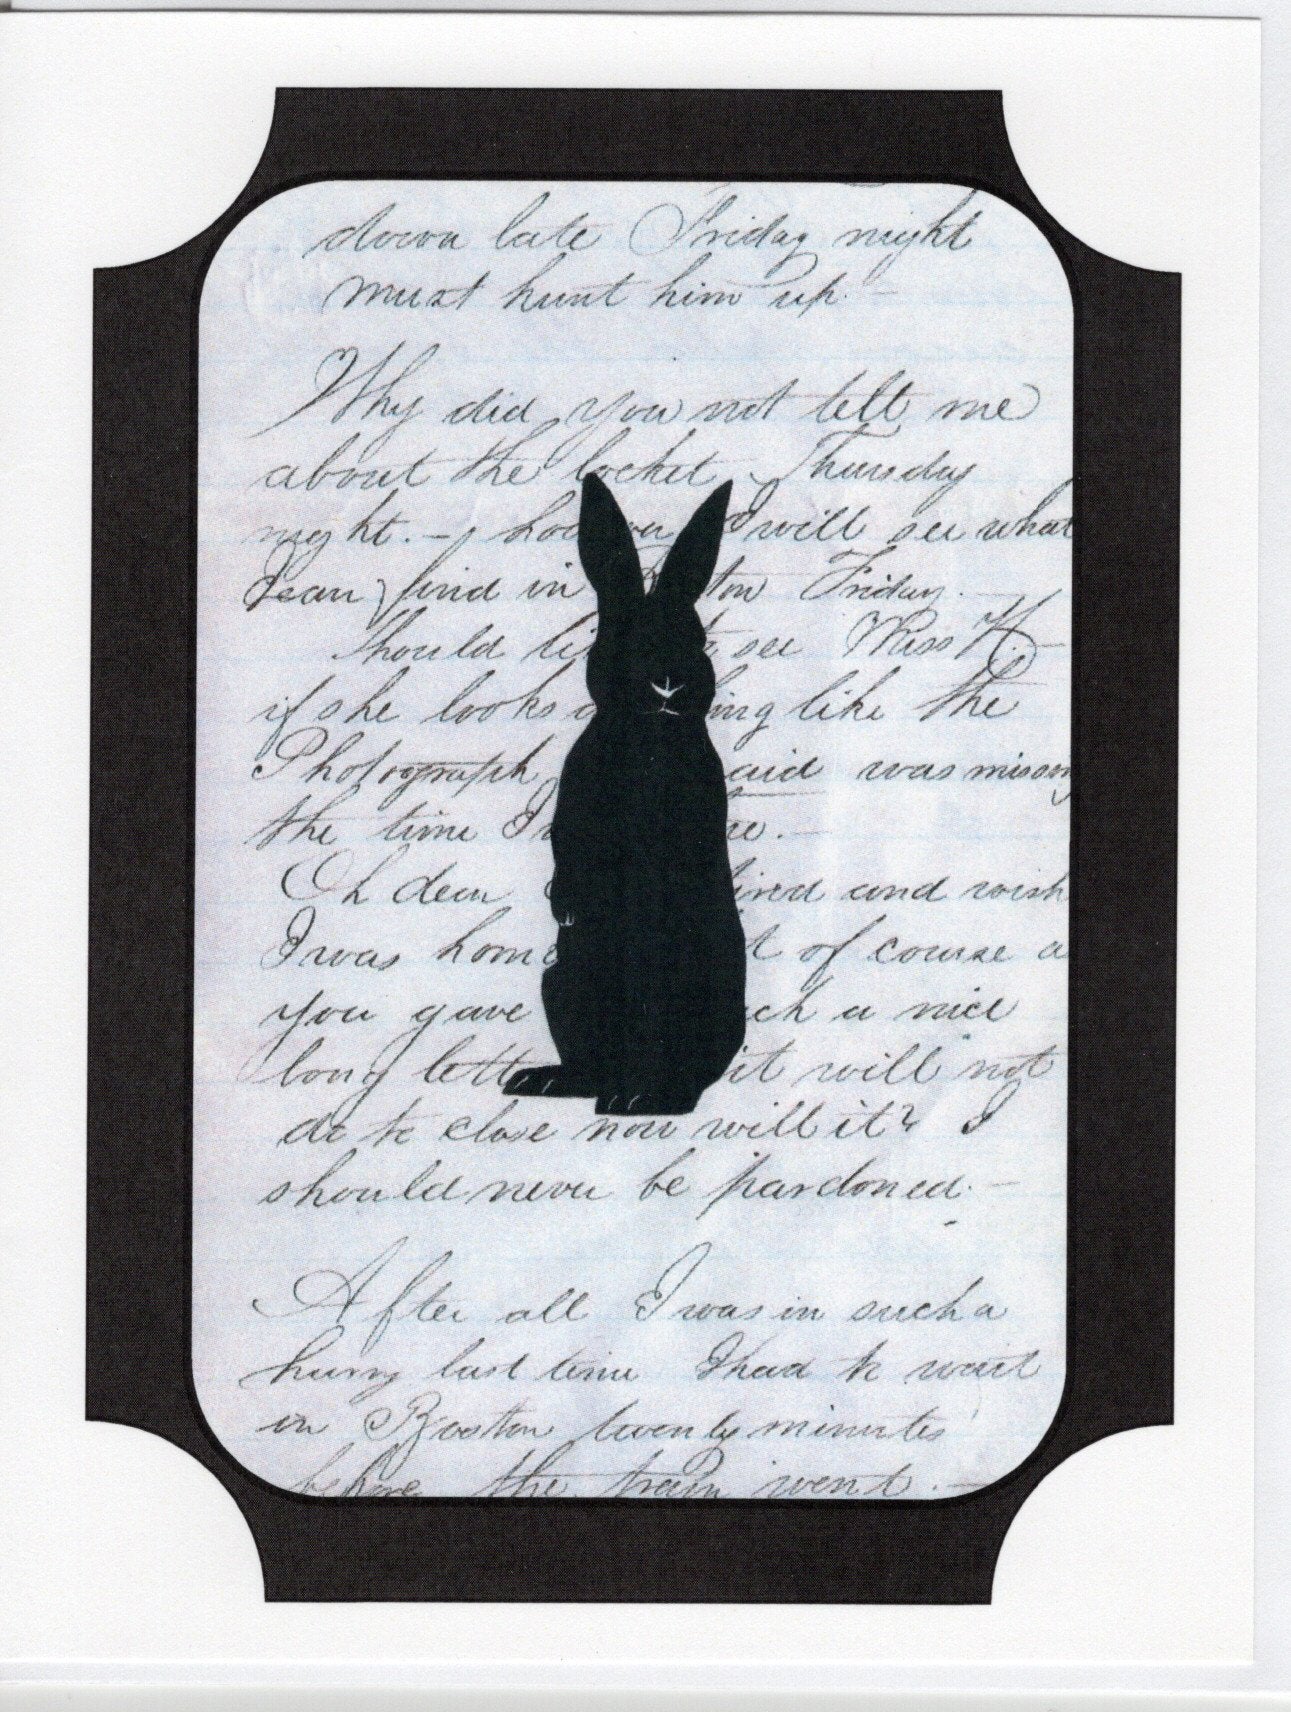 down late Friday night
must hunt him up. -
Why did you not tell me
about the locket Thursday
night. - I will see what
I can find in Friday. -
Should see Miss H. -
if she looks like the
Photograph was missing
the time I
Oh dear and wish
I was home of course a
you gave a nice
long it will not
do to close now will it? I
should never be pardoned. -
After all I was in such a
hurry last time I had to wait
in Boston twenty minutes
before the train went. -